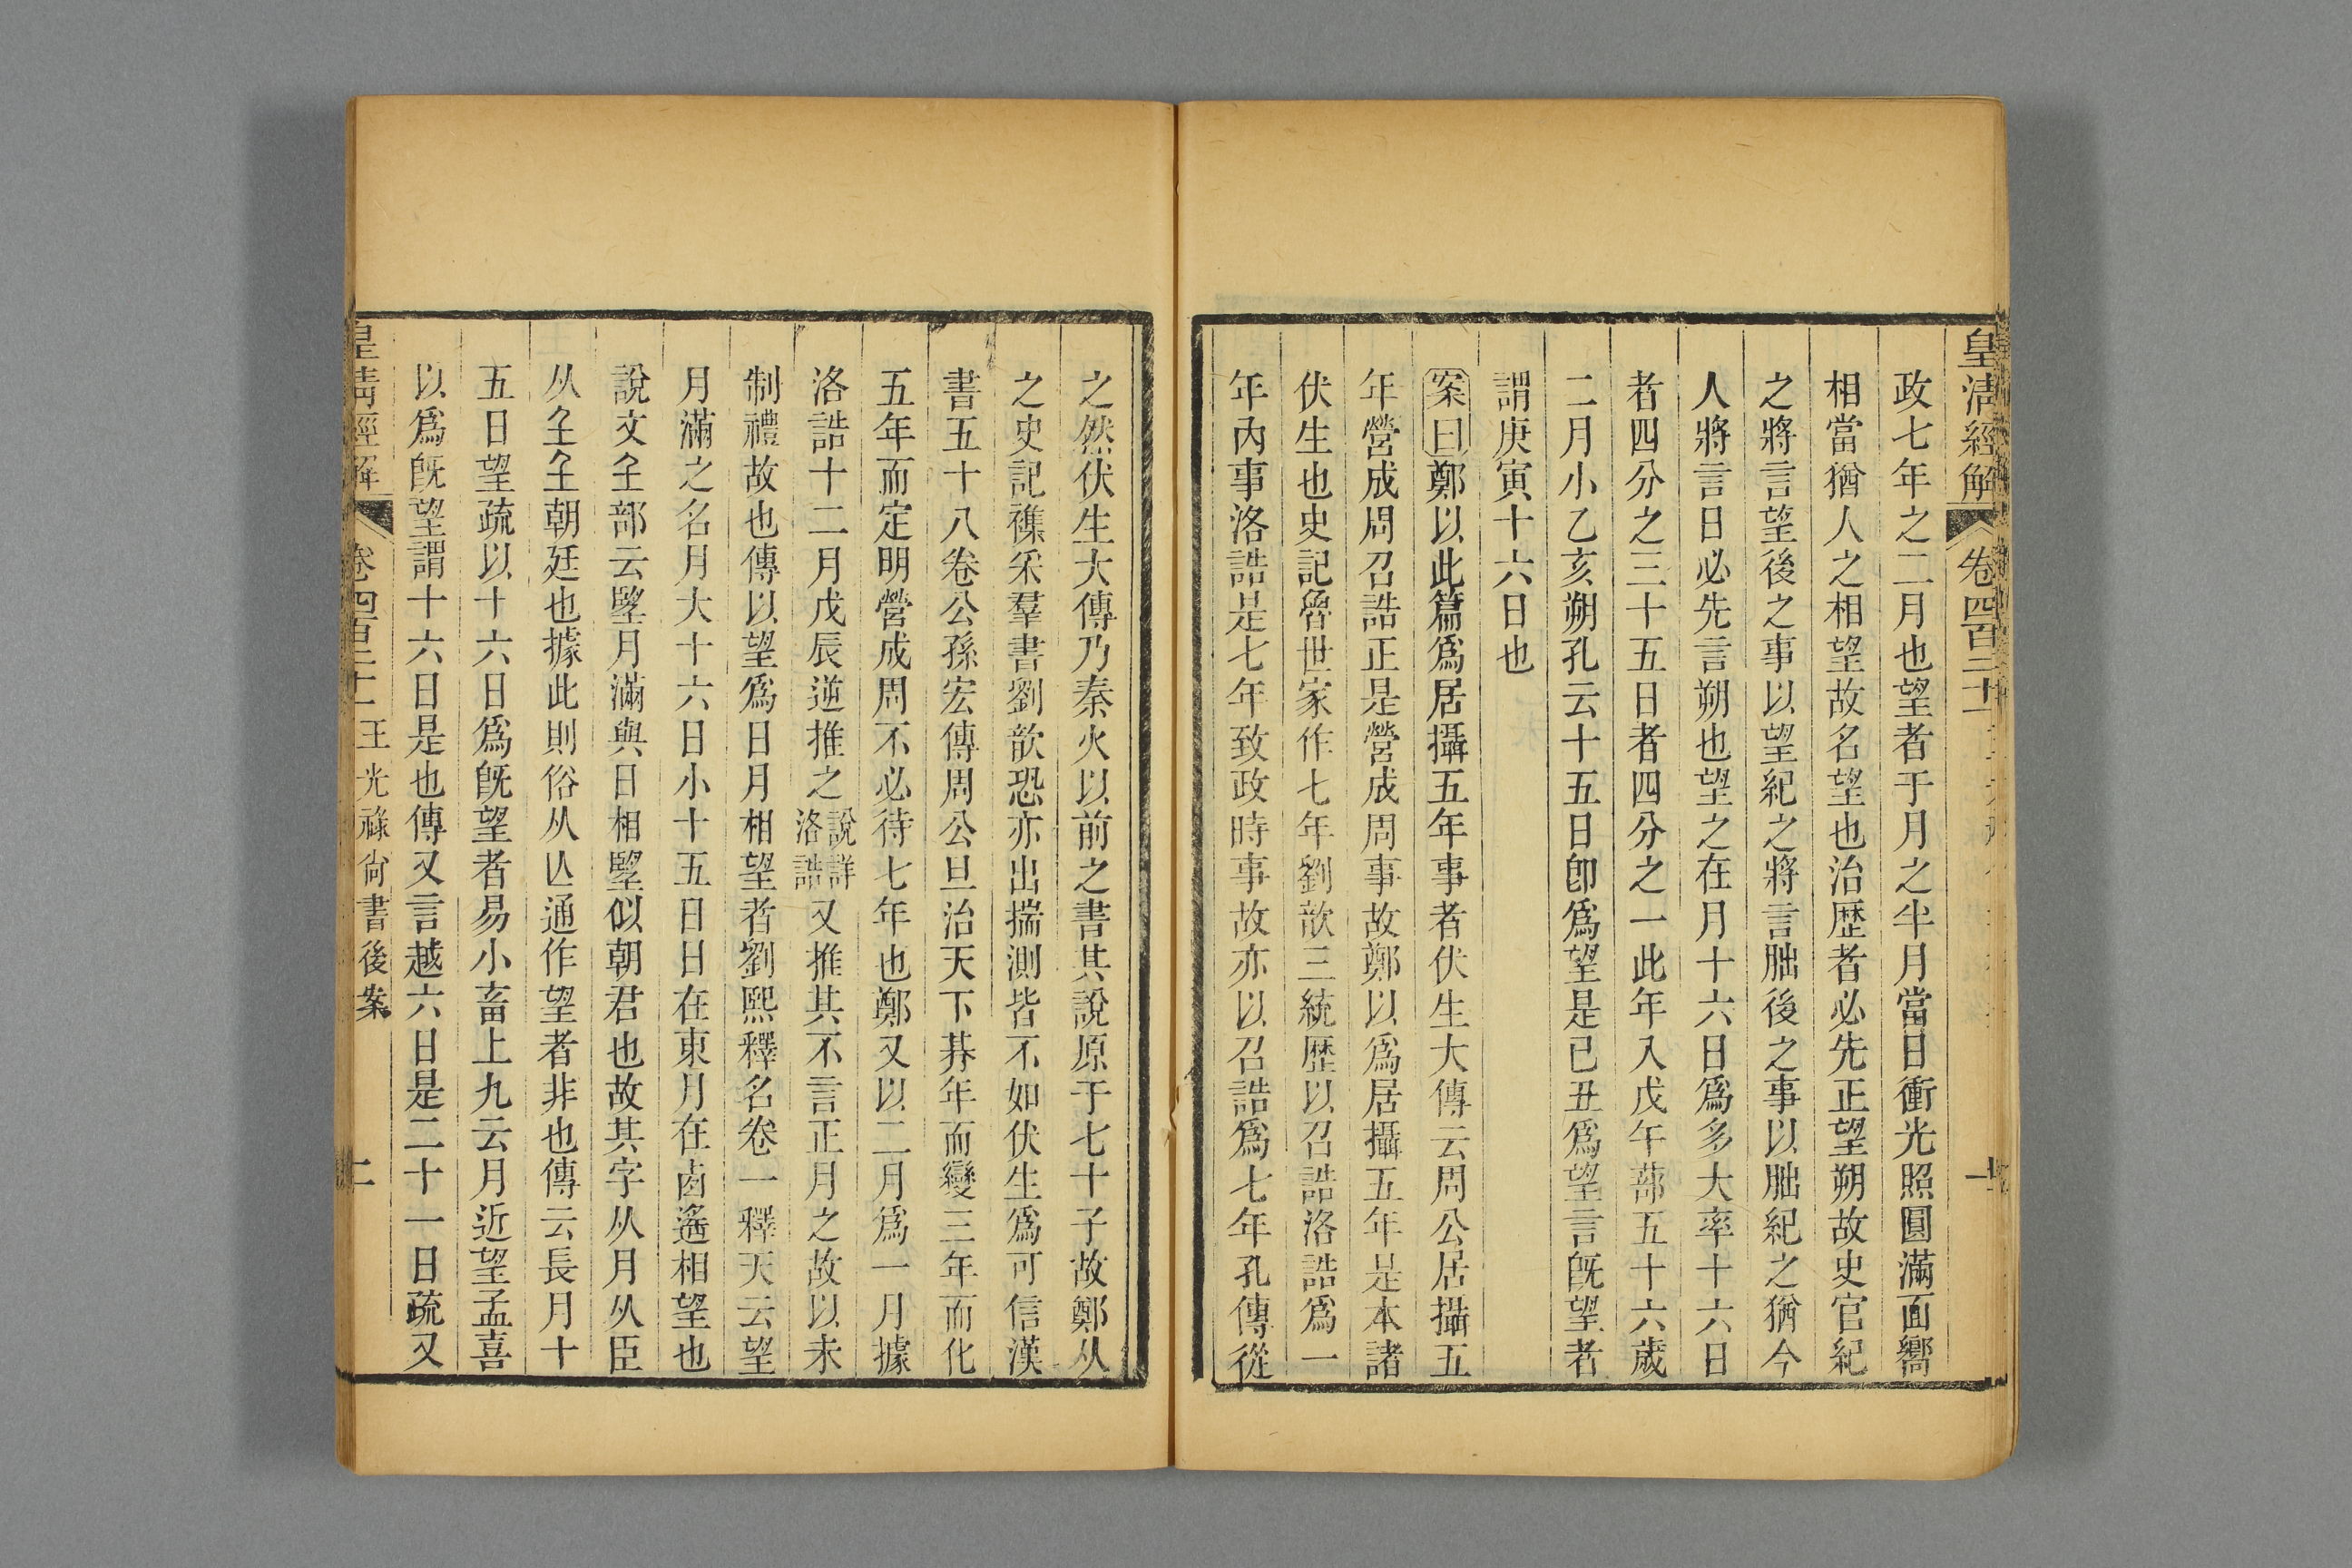 皇淸經解 卷四百二十 一
政七年之二月也望者于月之半月當日衝光照圓滿面嚮
相當猶人之相望故名望也治歷者必先正望朔故史官紀
之將言望後之事以望紀之將言朏後之事以朏紀之猶今
人將言日必先言朔也望之在月十六日爲多大率十六日
者四分之三十五日者四分之一此年入戊午蔀五十六歲
二月小乙亥朔孔云十五日卽爲望是已丑爲望言旣望者
謂庚寅十六日也
案曰鄭以此篇爲居攝五年事者伏生大傳云周公居攝五
年營成周召誥正是營成周事故鄭以爲居攝五年是本諸
伏生也史記魯世家作七年劉歆三統歷以召誥洛誥爲一
年內事洛誥是七年致政時事故亦以召誥爲七年孔傳從
之然伏生大傳乃秦火以前之書其說原于七十子故鄭从
之史記襍采羣書劉歆恐亦出揣測皆不如伏生爲可信漢
書五十八卷公孫宏傳周公旦治天下朞年而變三年而化
五年而定明營成周不必待七年也鄭又以二月爲一月據
洛誥十二月戊辰逆推之說詳洛誥又推其不言正月之故以未
制禮故也傳以望爲日月相望者劉熙釋名卷一釋天云望
月滿之名月大十六日小十五日日在東月在卤遙相望也
說文𡈼部云朢月滿與日相朢似朝君也故其字从月从臣
从𡈼𡈼朝廷也據此則俗从亾通作望者非也傳云長月十
五日望疏以十六日爲旣望者易小畜上九云月近望孟喜
以爲旣望謂十六日是也傳又言越六日是二十一日疏又
皇淸經解 卷四百二十 王光祿尙書後案 二